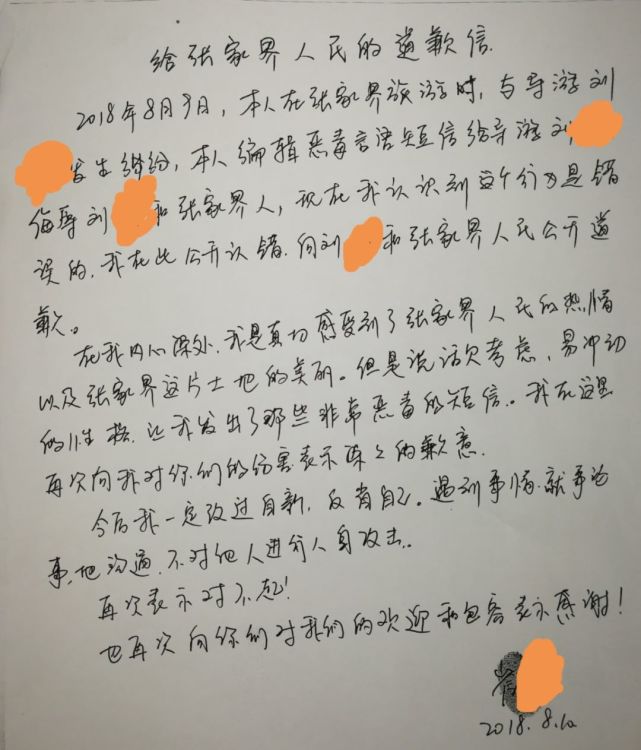 给张家界人民的道歉信
2018年8月9日，本人在张家界旅游时，与导游刘
发生纠纷，本人编辑恶毒言语短信给导游刘
侮辱刘 和张家界人，现在我认识到这个行为是错
误的.我在此公开认错.向刘 和张家界人民公开道
歉。
在我内心深处.我是真切感受到了张家界人民的热情
以及张家界这片土地的美丽。但是说话欠考虑，易冲动
的性格.让我发出了那些非常恶毒的短信。我在这里
再次向我对你们的伤害表示深深的歉意.
今后我一定改过自新，反省自己。遇到事情.就事论
事地沟通.不对他人进行人身攻击.
再次表示对不起！
也再次向你们对我们的欢迎和包容表示感谢！
2018.8.10